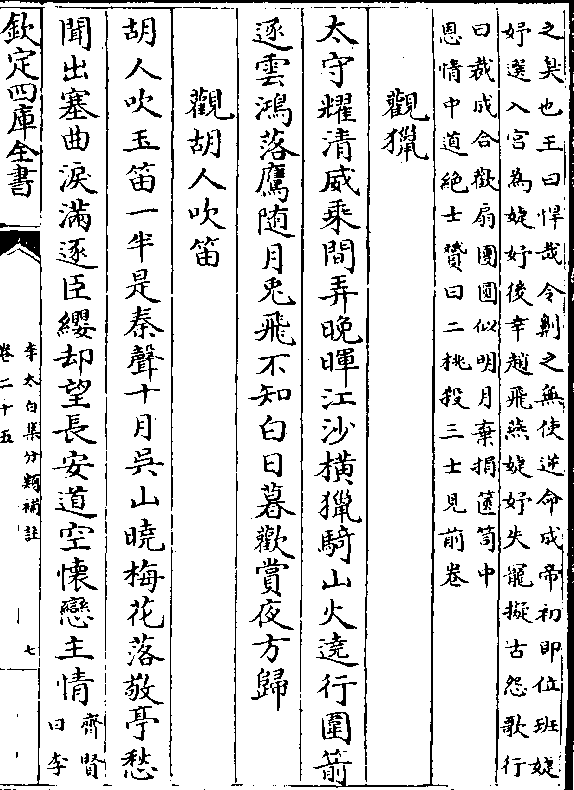 之矣也王曰悍哉令劓之無使逆命成帝初即位班婕
妤選入宮為婕妤後幸趙飛燕婕妤失寵擬古怨歌行
曰裁成合歡扇團圓似明月棄捐篋笥中
恩情中道絕士贇曰二桃投三士見前卷
觀獵
太守耀清威乘間弄晚暉江沙橫獵騎山火遶行圍箭
逐雲鴻落鷹隨月兎飛不知白日暮歡賞夜方歸
觀胡人吹笛
胡人吹玉笛一半是秦聲十月吳山曉梅花落敬亭愁
聞出塞曲淚滿逐臣纓却望長安道空懷戀主情齊賢
曰李
欽定四庫全書
李太白集分類補註
卷二十五
七